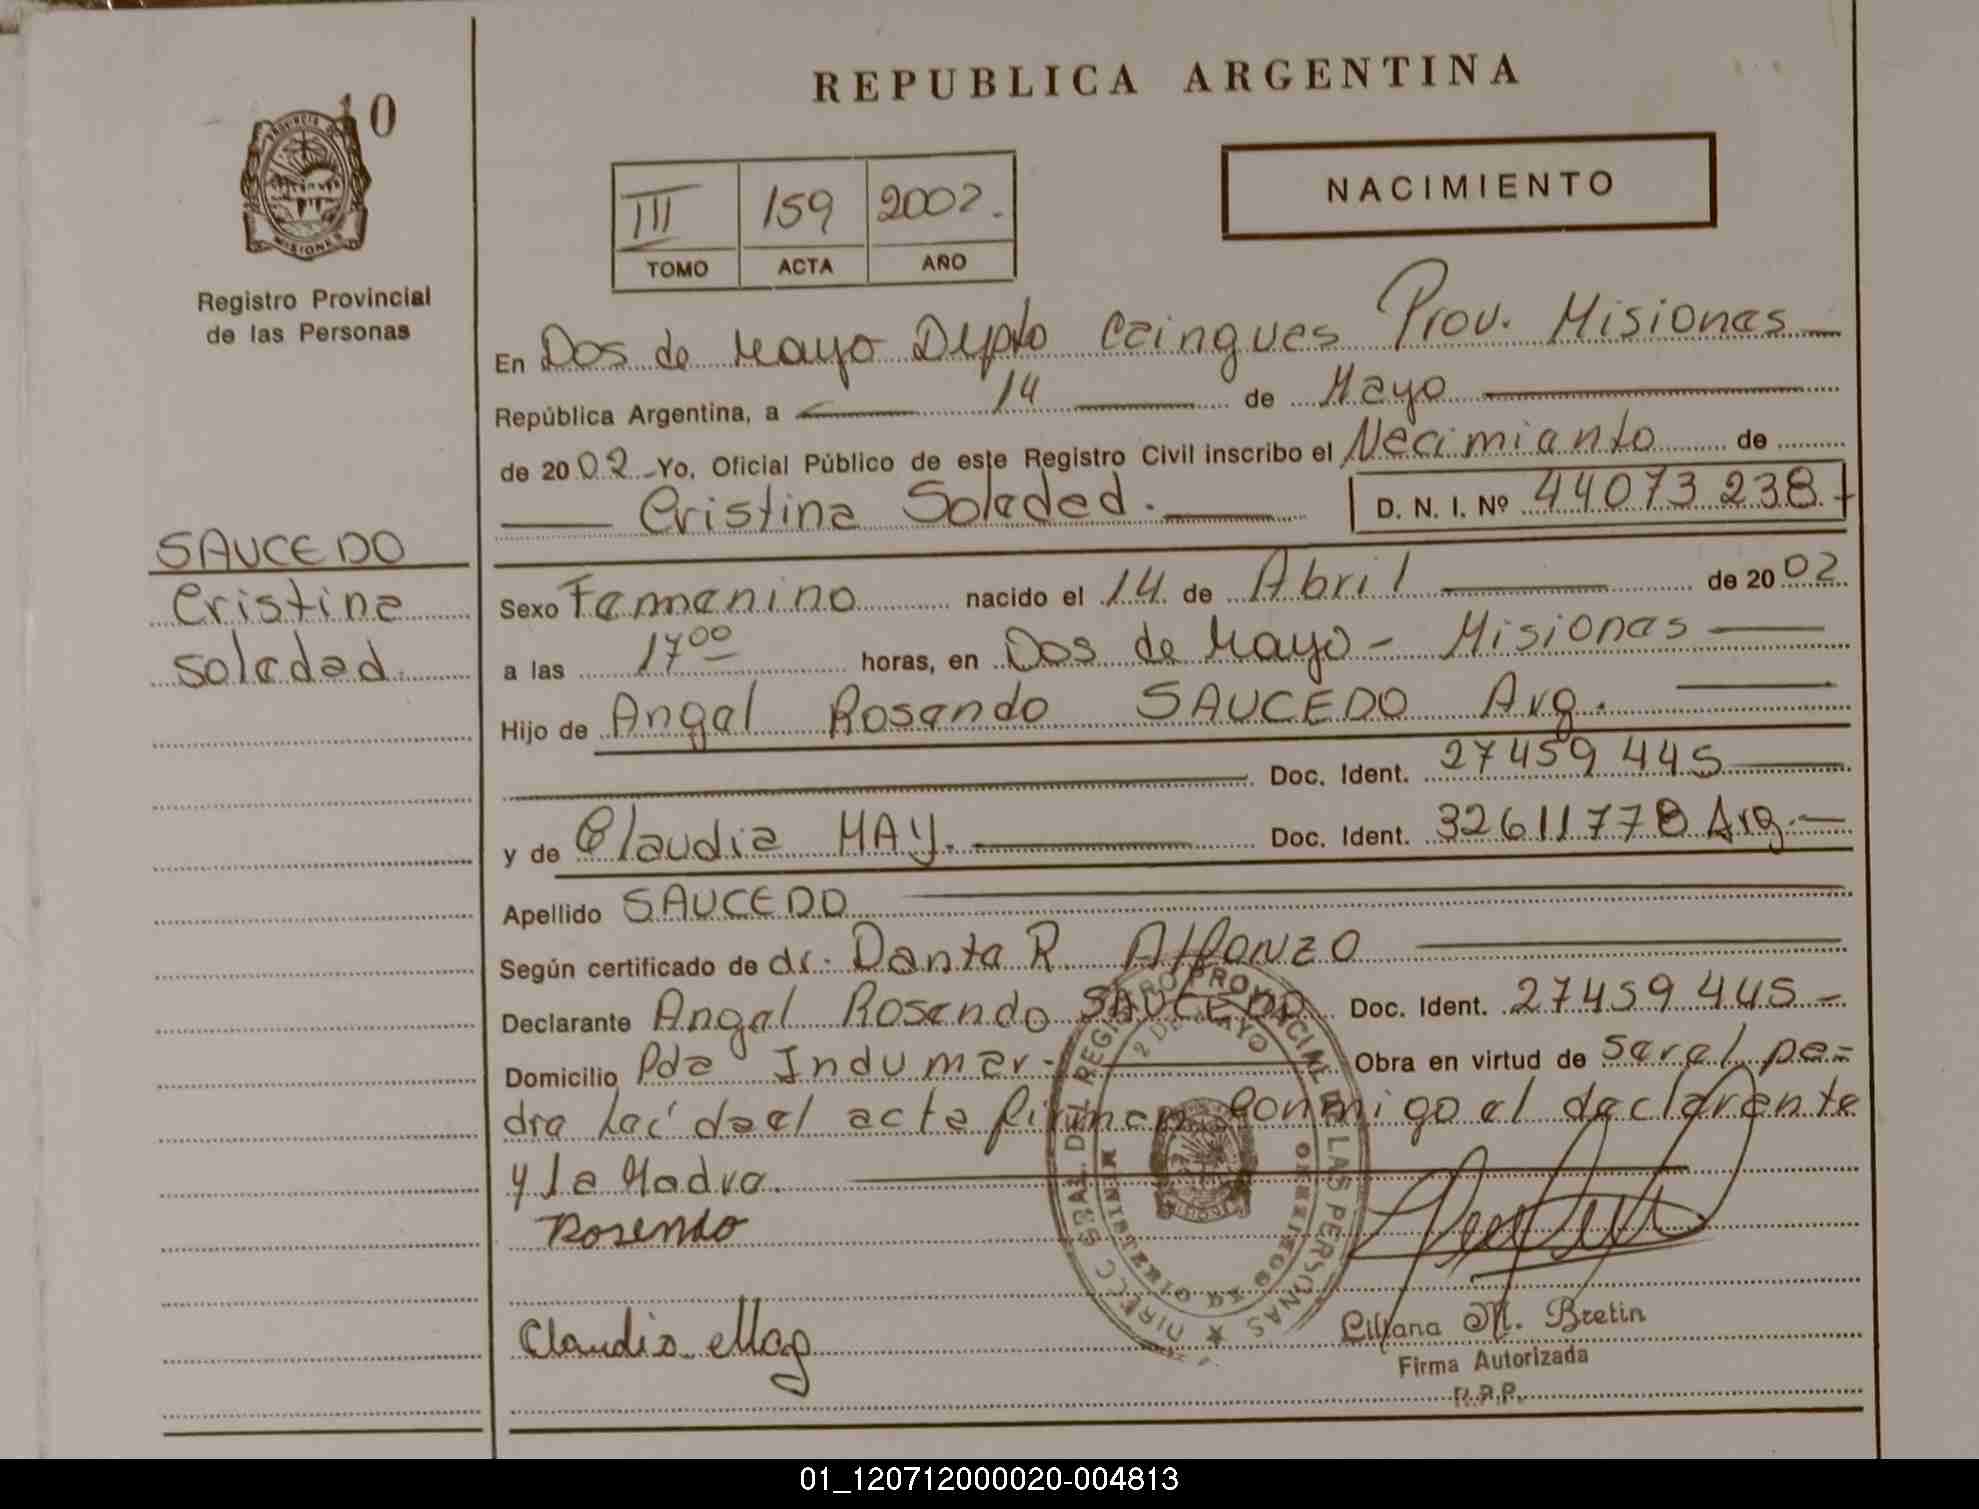 10
REPUBLICA ARGENTINA
PROVINCIA DE MISIONES
Registro Provincial
de las Personas
III 159 2002.
TOMO ACTA AÑO
NACIMIENTO
En Dos de Mayo Dpto Cainguas Prov. Misiones
República Argentina, a 14 de Mayo
de 2002 Yo, Oficial Público de este Registro Civil inscribo el Nacimiento de
Cristina Soledad. D. N. I. Nº 44073.238.
SAUCEDO
Cristina
Soledad.
Sexo Femenino nacido el 14 de Abril de 2002
a las 17⁰⁰ horas, en Dos de Mayo - Misiones
Hijo de Angel Rosendo SAUCEDO Arg.
Doc. Ident. 27459445
y de Claudia MAY. Doc. Ident. 32611778 Arg.
Apellido SAUCEDO
Según certificado de dr. Dante R. Alfonzo
Declarante Angel Rosendo SAUCEDO Doc. Ident. 27459445
Domicilio Pda Indumar- Obra en virtud de ser el pa-
dre Leí da el acta firman conmigo el declarante
y la Madre.
Rosendo
Claudia May
DIRECC GRAL. DEL REGISTRO PROVINCIAL DE LAS PERSONAS
2 DE MAYO
MINISTERIO DE GOBIERNO
Liliana M. Bretin
Firma Autorizada
R.P.P.
01_120712000020-004813